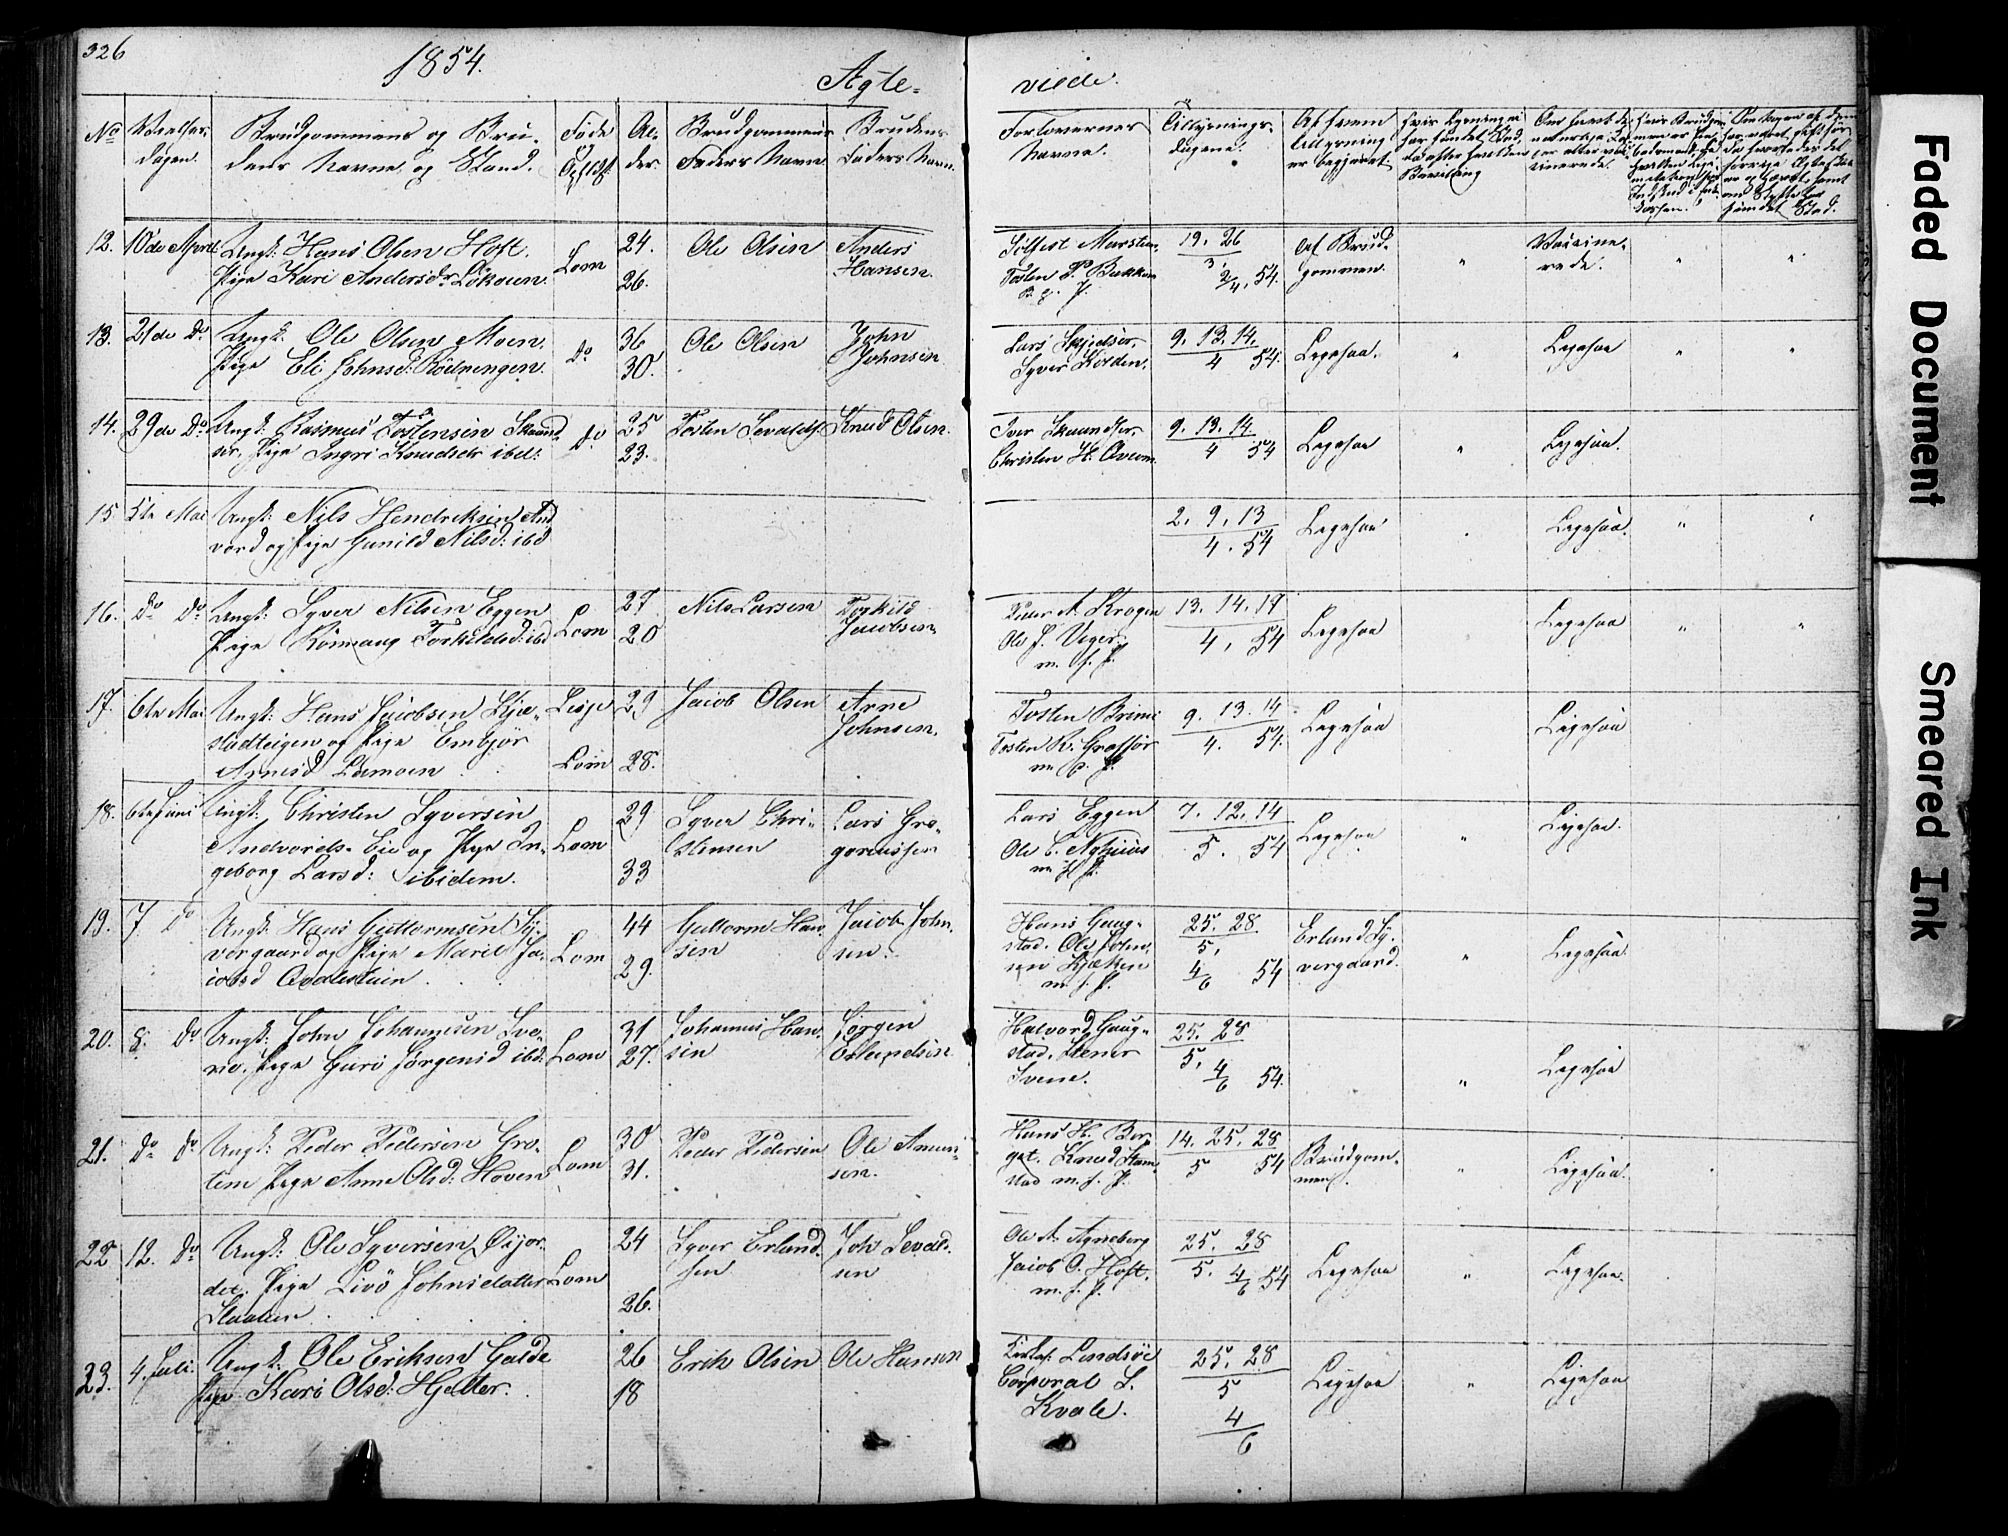 326
1854.
Ægte-
viede.
No
Vielses-
dagen.
Brudgommens og Bru-
dens Navne og Stand.
Føde
Al-
der.
Brudgommens
Faders Navn.
Brudens
Faders Navn.
Forlovernes
Navne.
Tillysnings-
dagene.
Af hvem
Tillysning
er begjæret.
12. 10de April. Ungk: Hans Olsen Hoft.
Pige Kari Andersdr Lökoien.
Lom
24.
26.
Ole Olsen
Anders
Hansen.
Tosten P. Bakken
19. 26
3.
2/4. 54.
Af Brud-
gommen.
Vaccine-
rede.
13. 21de Do Ungk: Ole Olsen Moen.
Pige Eli Johnsd: Rödningen.
Do
36
30.
Ole Olsen
John
Johnsen
Syver Kolden.
9. 13. 14.
4 54.
Ligesaa.
Ligesaa
14. 29de Do Ungk: Rasmus Tostensen Skaand-
ser, Pige Ingri Knudsdr ibd:
Do
25
23.
Tosten Sevaldsl.
Knud Olsen.
Iver Skaundser,
Christen H. Öveom
9. 13. 14.
4 54
Ligesaa
Ligesaa.
15 5te Mai Ungk: Nils Hendriksen And
vord og Pige Gunild Nilsd: ibd
2. 9. 13
4. 54
Ligesaa
Ligesaa.
16. Do Do Ungk: Syver Nilsen Eggen
Pige Rönnaug Torkildsd: ibd
Lom
27
20
Nils Larsen
Torkild
Jacobsen
Peder A. Krogen
13. 14. 17
4, 54
Ligesaa
Ligesaa
17. 6te Mai Ungk: Hans Jacobsen Skja-
stadteigen og Pige Embjør
Arnesd Lömoen
Lesje
Lom
29
28.
Jacob Olsen
Arne
Johnsen.
Tosten Brimi
Tosten R. Graffør
9. 13. 14
4. 54.
Ligesaa
Ligesaa
18. 6te Juni Ungk: Christen Syversen
Andvords-Eie og Pige In-
geborg Larsd: ibidem.
Lom
29
33
Syver Chri-
stensen
Lars Gre-
goriussen
Lars Eggen
7. 12. 14
5. 54
Ligesaa
Ligesaa.
19. 7. do Ungk: Hans Guttormsen Sy-
vergaard og Pige Marit Ja-
cobsd Qvalestuen
Lom
44
29.
Guttorm Han-
sen
Jacob John-
sen.
Hans Gaug-
stad. Ole John-
sen Kjækken
m. f. P.
25. 28
5,
4/6 54
Erland Sy-
vergaard.
Ligesaa.
20. 8. Do Ungk: John Johannesen Sve-
rie. Pige Guro Jørgensd ibd:
Lom
31
27.
Johannes Han-
sen
Jörgen
Eslendsen.
Halvord Gaug-
stad.
25. 28
5,
4/6 54.
Ligesaa
21. Do Do Ungk: Peder Pedersen Gro-
tem Pige Anne Olsd: Hoven
Lom
30
31.
Peder Pedersen
Ole Amun-
sen.
Hans H. Ber-
get. Knud Stam-
stad m. f. P.
14. 25. 28
5 54
Brudgom-
men.
Ligesaa.
22 12. Do Ungk: Ole Syversen Öijor-
det. Pige Livö Johnsdatter
Staalen
Lom
24
26.
Syver Erland-
sen
Joh Sevald-
sen
Ole A. Agneberg
Jacob O. Hoft.
m. f. P.
25. 28
5. 4/6 54
Ligesaa
Ligesaa.
23. 4. Juli. Ungk: Ole Eriksen Galde
Pige Kari Olsd: Hjelter.
26
18
Erik Olsen
Ole Hansen
Lindsöe
Corporal L.
Kvale.
25. 28
5
4
6
Ligesaa
Ligesaa
Faded Document
Smeared Ink